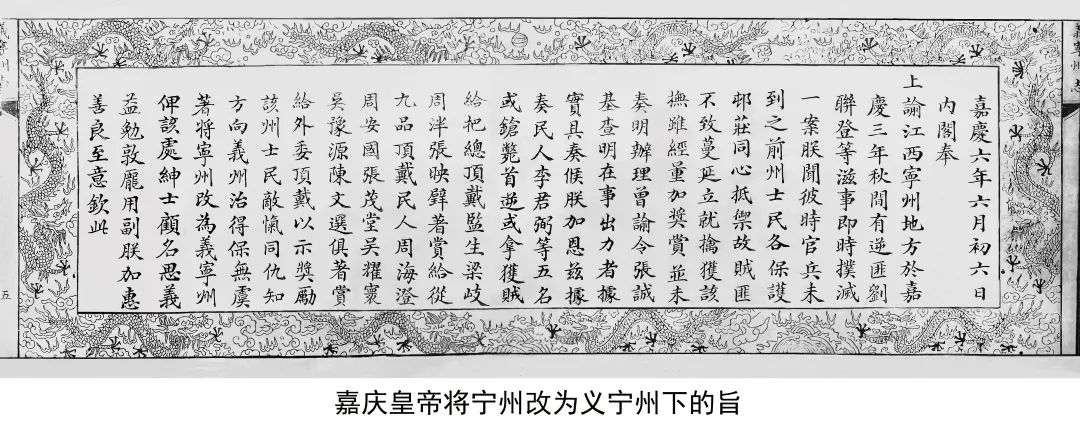 嘉慶六年六月初六日
內閣奉
上諭江西寧州地方於嘉
慶三年秋間有逆匪劉
聯登等滋事即時撲滅
一案朕聞彼時官兵未
到之前州士民各保護
邨莊同心抵禦故賊匪
不致蔓延立就擒獲該
撫雖經量加獎賞並未
奏明辦理曾諭令張誠
基查明在事出力者據
實具奏候朕加恩茲據
奏民人李君弼等五名
或鎗斃首逆或拿獲賊
給把總頂戴監生梁岐
周泮張映㩧著賞給從
九品頂戴民人周海澄
周安國張茂堂吳耀寰
吳豫源陳文選俱著賞
給外委頂戴以示獎勵
該州士民敵愾同仇知
方向義州治得保無虞
著將寧州改為義寧州
俾該處紳士顧名思義
益勉敦龐用副朕加惠
善良至意欽此
五
嘉庆皇帝将宁州改为义宁州下的旨